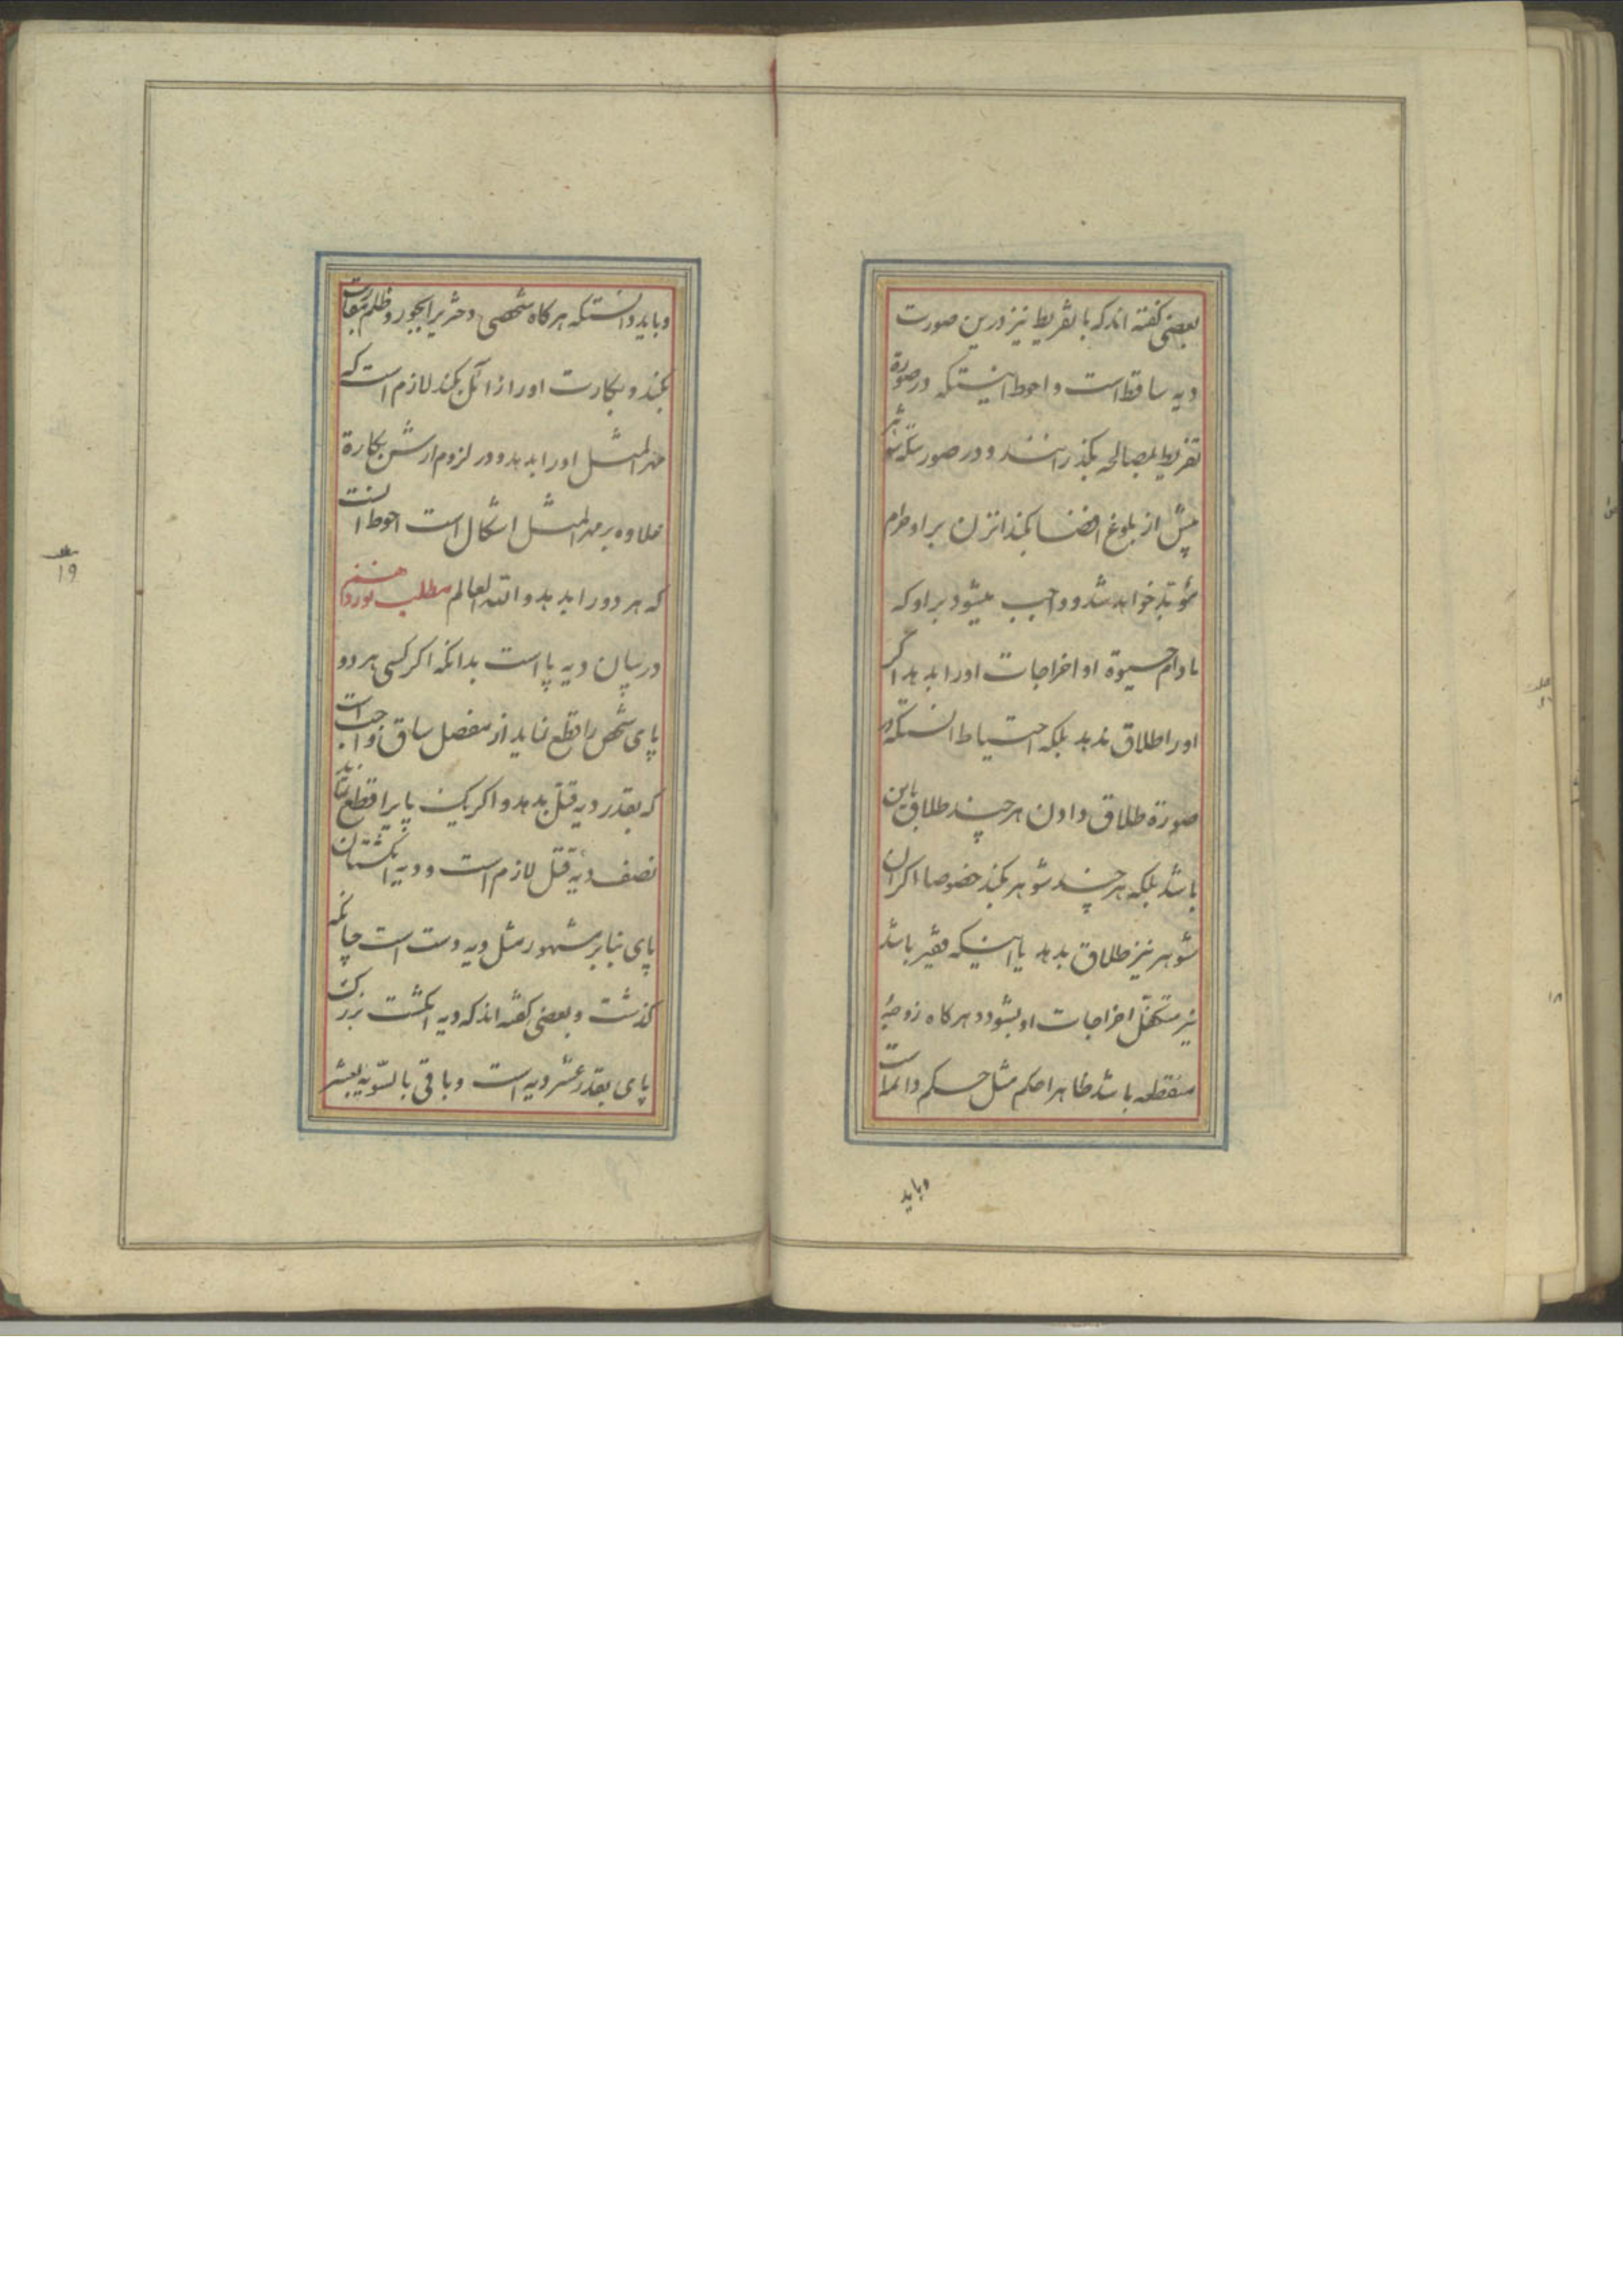 بعضی گفته اند که با تفریط نیز درین صورت
دیه ساقط است و احوط اینستکه در صورة
تفریط بمصالحه بگذرانند و در صورتیکه
پیش از بلوغ افضا بکند انزن بر او حرام
مؤبد خواهد شد و واجب میشود بر او که
مادام حیوة او اخراجات اورا بدهد اگر
اورا طلاق ندهد بلکه احتیاط انستکه در
صورة طلاق دادن هر چند طلاق باین
باشد بلکه هر چند شوهر بکند خصوصا اگر ان
شوهر نیز طلاق بدهد یا اینکه فقیر باشد
نیز متکفل اخراجات او بشود و هرگاه زوجهٔ
منقطعه باشد ظاهرا حکم مثل حکم دائم است
وباید
وباید دانستکه هرگاه شخصی دختریرا بجور و ظلم مقاربت
بکند و بکارت اورا زائل بکند لازم است که
مهر المثل اورا بدهد و در لزوم ارش بکارة
علاوه بر مهر المثل اشکال است احوط انست
که هر دو را بدهد والله العالم مطلب نوزدهم
در بیان دیه پا است بدانکه اگر کسی هر دو
پای شخص را قطع نماید از مفصل ساق واجب است
که بقدر دیه قتل بدهد و اگر یک پایرا قطع نماید
نصف دیه قتل لازم است و دیه انگشتان
پای بنابر مشهور مثل دیه دست است چنانکه
گذشت و بعضی گفته اند که دیه انگشت بزرگ
پای بقدر عشر دیه است و باقی بالسّویه بعشر
۱۹
۱۸